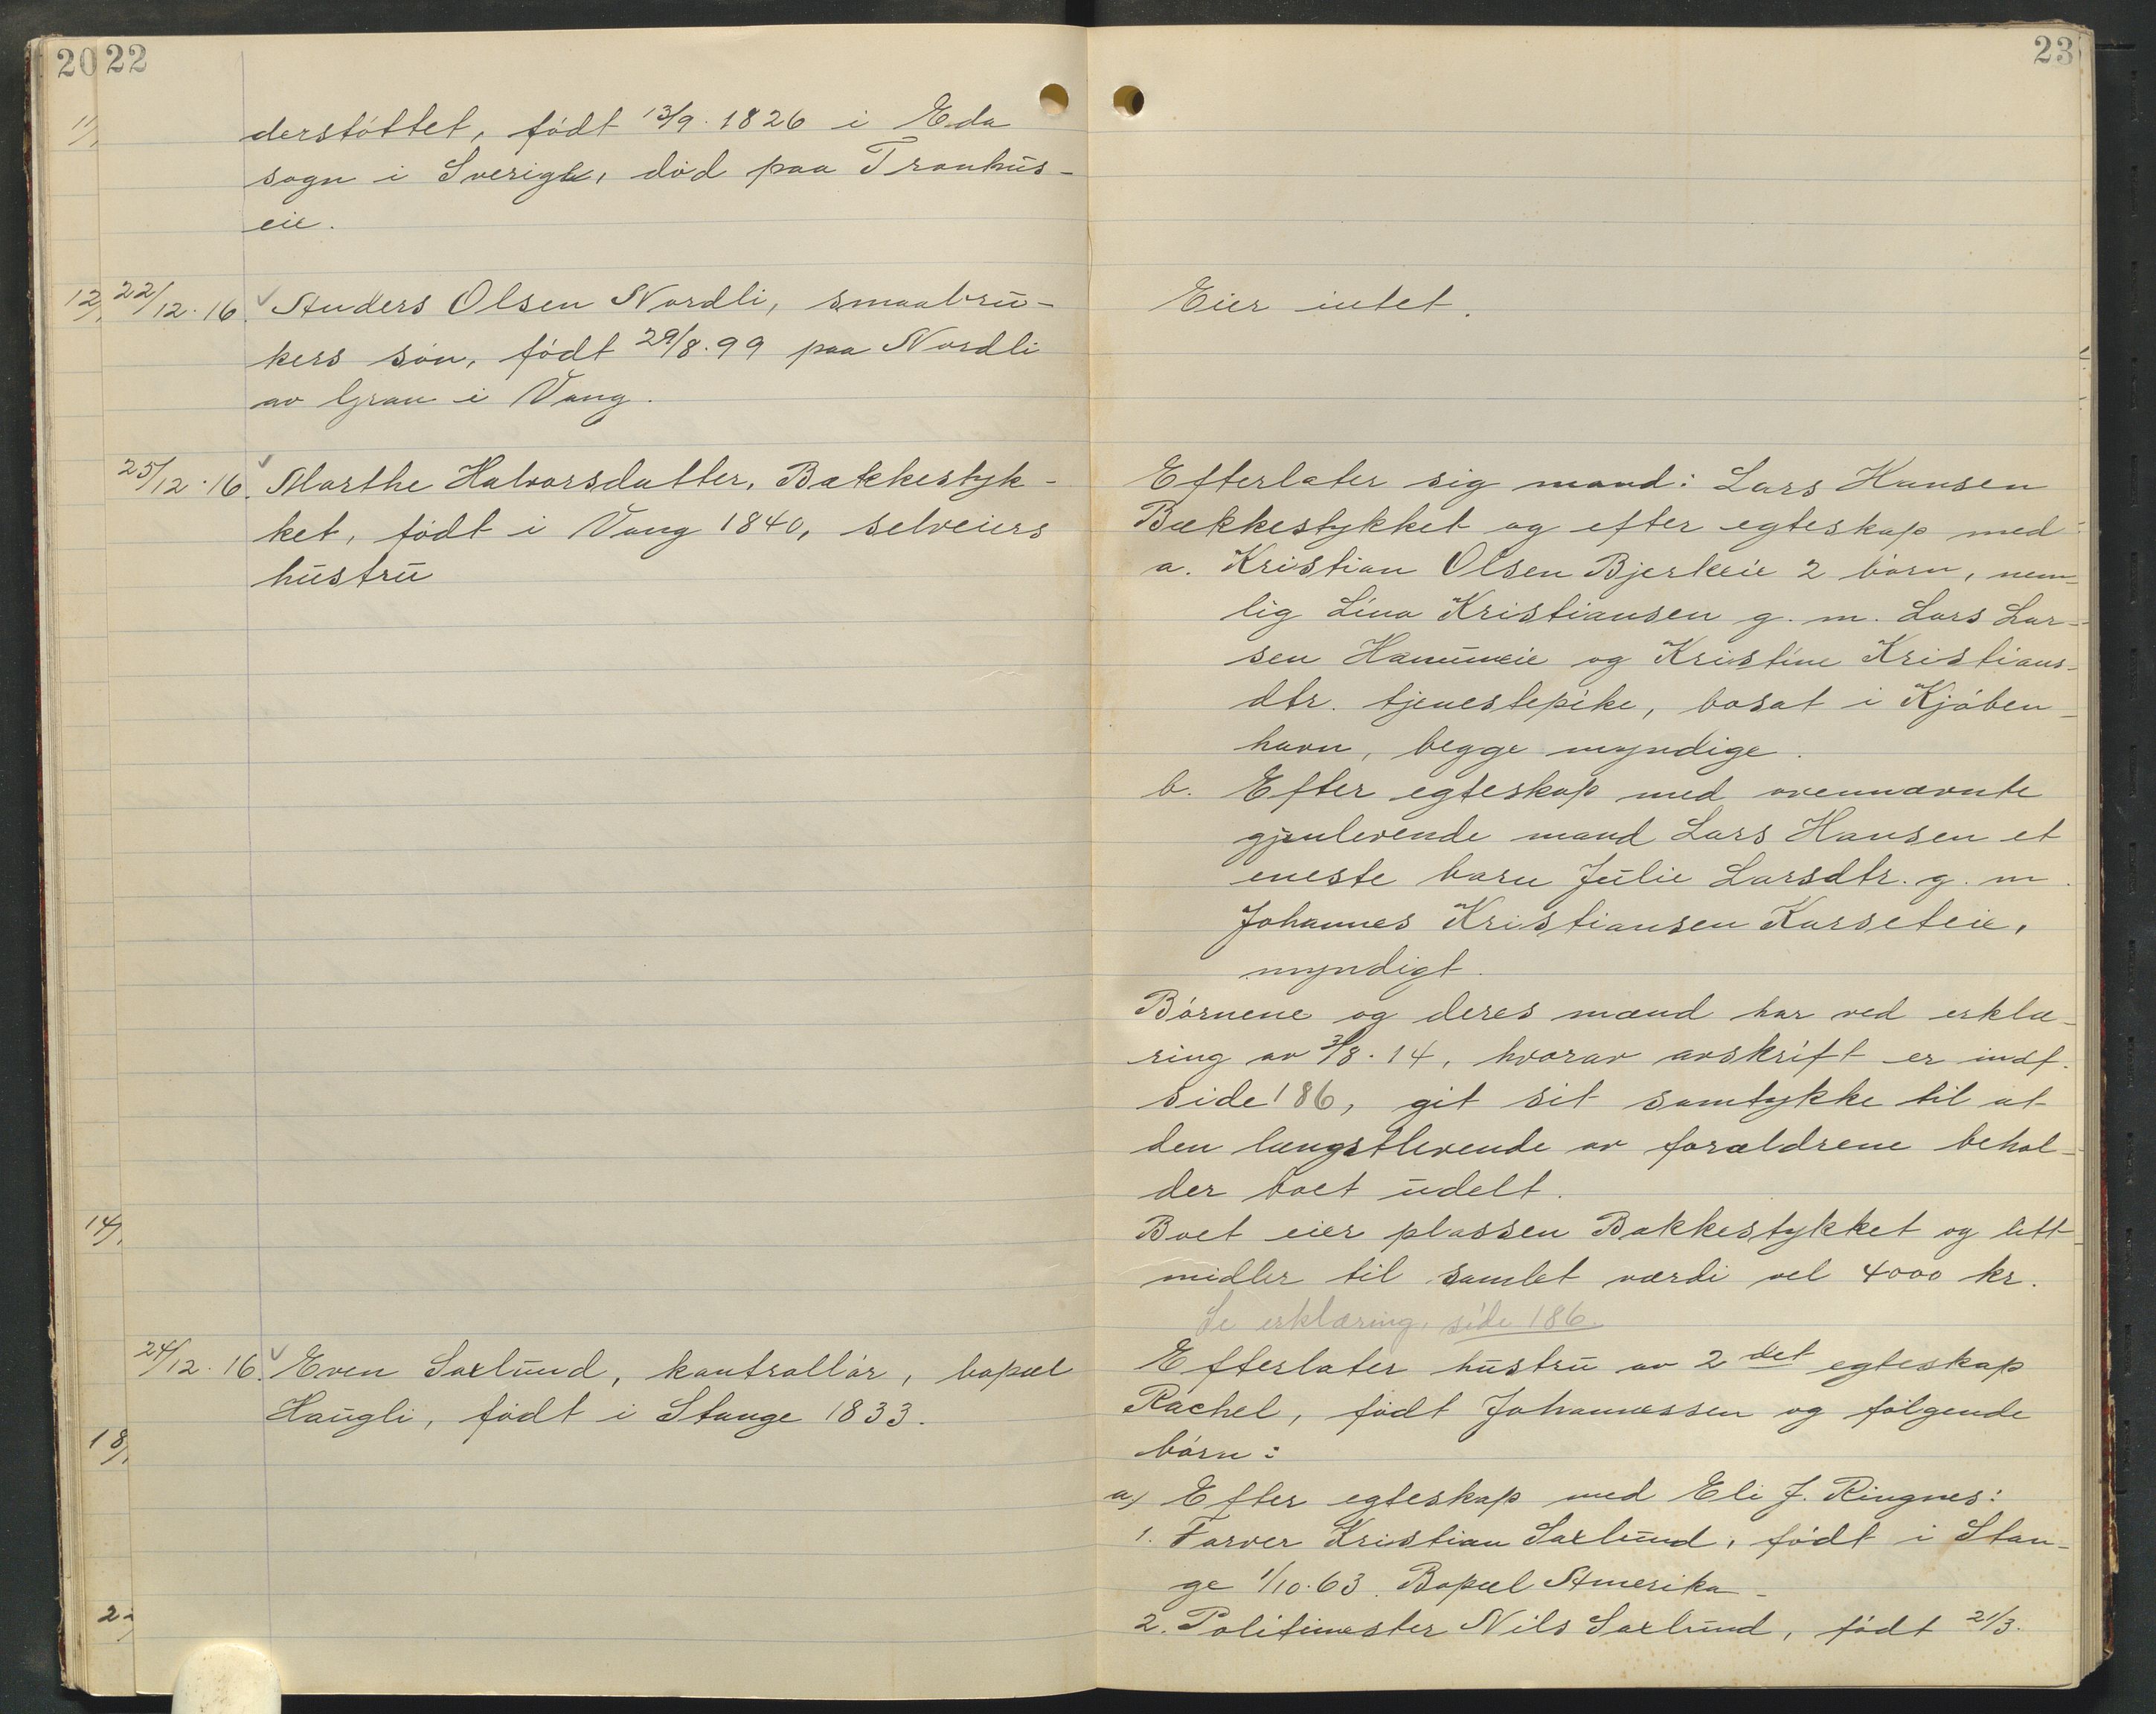 20 22
derstøttet, født 13/9. 1826 i Eda
sogn i Sverige, død paa Tronhus-
eie.
22/12. 16. Anders Olsen Nordli, smaabru-
kers søn, født 29/8. 99 paa Nordli
av Gran i Vang.
25/12. 16. Marthe Halvorsdatter, Bakkestyk-
ket, født i Vang 1840, selveiers
hustru
24/12. 16. Even Saxlund, kontrollør, bopæl
Haugli, født i Stange 1833.
11/
12/
14/
18/
2
23
Eier intet.
Efterlater sig mand: Lars Hansen
Bækkestykket og efter egteskap med
a. Kristian Olsen Bjerkeie 2 børn, nem-
lig Lina Kristiansen g. m. Lars Lar-
sen Hammeie og Kristine Kristians-
dtr. tjenestepike, bosat i Kjøben-
havn, begge myndige.
b. Efter egteskap med ovennævnte
gjenlevende mand Lars Hansen et
eneste barn Julie Larsdtr. g. m.
Johannes Kristiansen Karseteie,
myndigt.
Børnene og deres mænd har ved erklæ-
ring av 3/8. 14, hvorav avskrift er indf.
side 186, git sit samtykke til at
den længstlevende av forældrene behol-
der boet udelt.
Boet eier plassen Bakkestykket og litt
midler til samlet værdi vel 4000 kr.
Se erklæring, side 186.
Efterlater hustru av 2det egteskap
Rachel, født Johannessen og følgende
børn:
a) Efter egteskap med Eli J. Ringnes:
1. Farver Kristian Saxlund, født i Stan-
ge 1/10. 63. Bopæl Amerika-
2. Politimester Nils Saxlund, født 21/3.